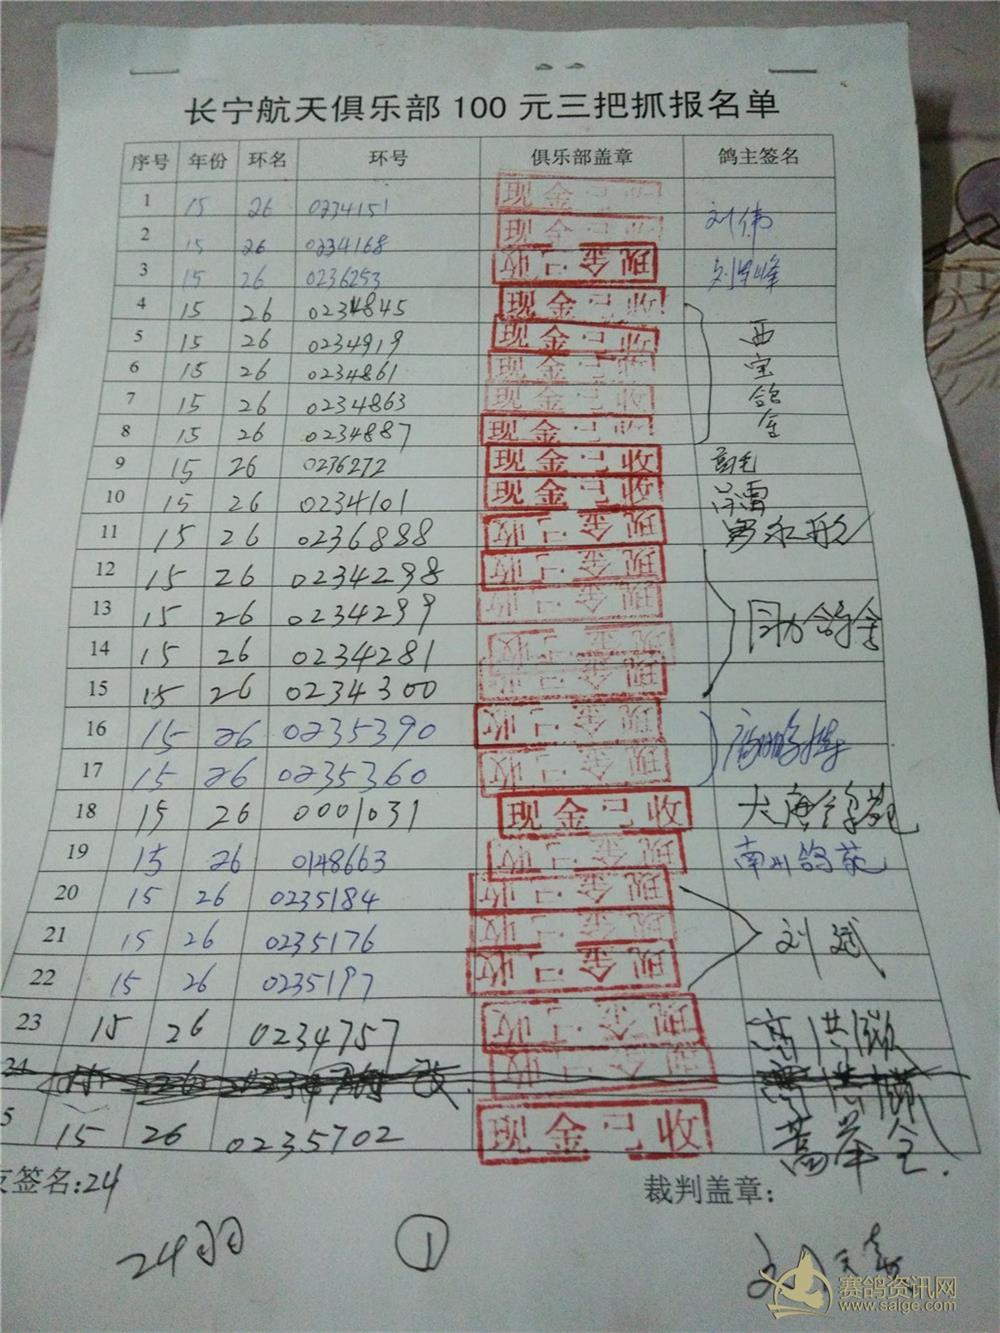 长宁航天俱乐部 100 元三把抓报名单
序号 年份 环名 环号 俱乐部盖章 鸽主签名
1 15 26 0234151 现金已收 刘伟
2 15 26 0234168 现金已收
3 15 26 0236253 现金已收
4 15 26 0234845 现金已收
5 15 26 0234919 现金已收
6 15 26 0234861 现金已收
7 15 26 0234863 现金已收
8 15 26 0234887 现金已收
9 15 26 0236272 现金已收
10 15 26 0234101 现金已收
11 15 26 0236888 现金已收
12 15 26 0234298 现金已收
13 15 26 0234299 现金已收
14 15 26 0234281 现金已收
15 15 26 0234300 现金已收
16 15 26 0235390 现金已收
17 15 26 0235360 现金已收
18 15 26 0001031 现金已收
19 15 26 0148663 现金已收 南州鸽苑
20 15 26 0235184 现金已收
21 15 26 0235176 现金已收 刘斌
22 15 26 0235197 现金已收
23 15 26 0234757 现金已收
24 现金已收
5 15 26 0235702 现金已收
签名:24 裁判盖章:
24羽 1
赛鸽资讯网
www.saige.com